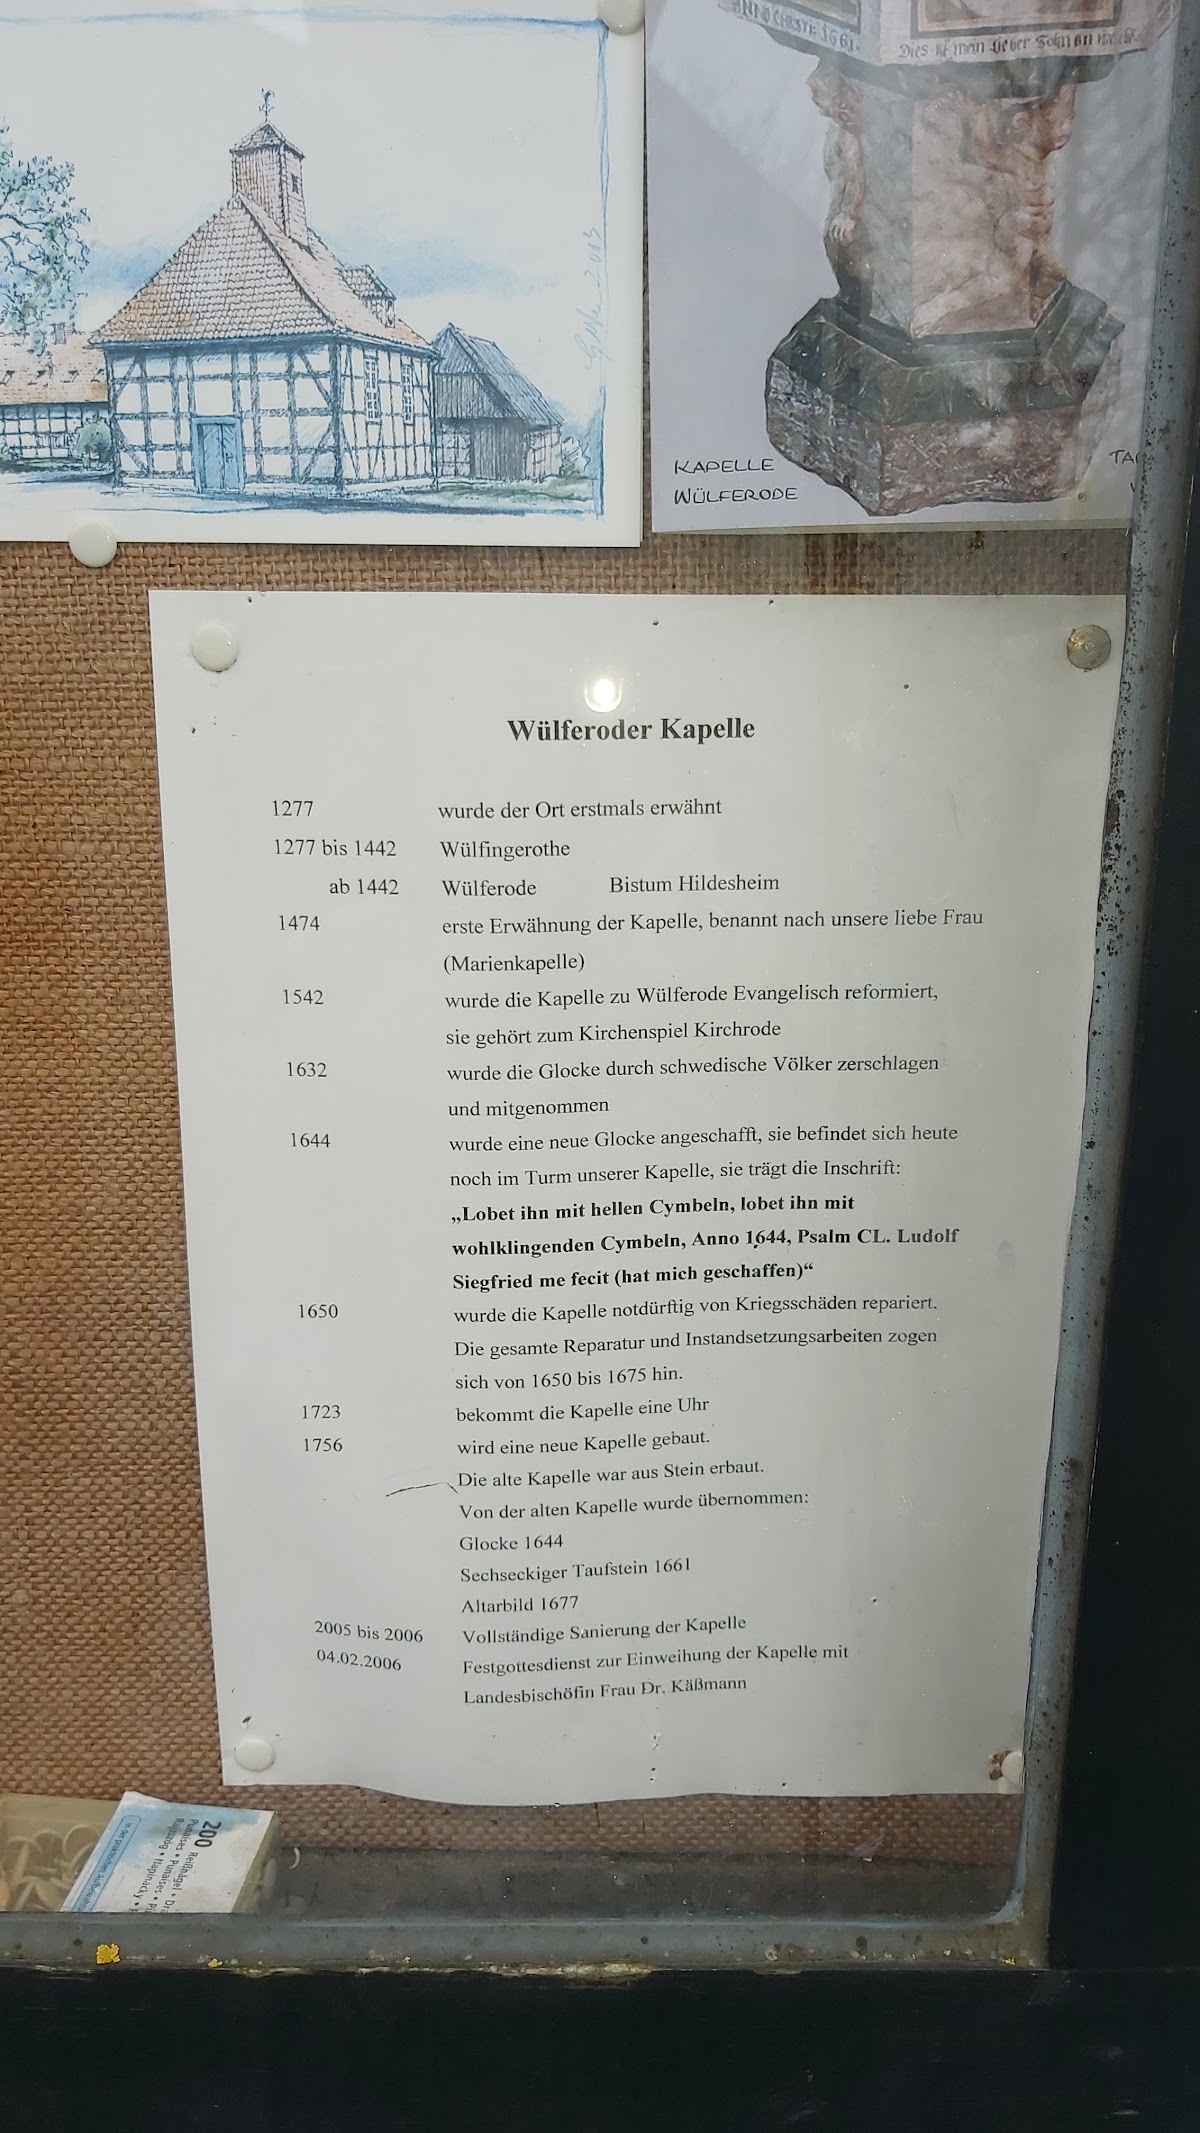 ANNO CHRISTI 1661.
Dies ist mein lieber Sohn an
2003
KAPELLE
WÜLFERODE
Wülferoder Kapelle
1277 wurde der Ort erstmals erwähnt
1277 bis 1442 Wülfingerothe
ab 1442 Wülferode Bistum Hildesheim
1474 erste Erwähnung der Kapelle, benannt nach unsere liebe Frau
(Marienkapelle)
1542 wurde die Kapelle zu Wülferode Evangelisch reformiert,
sie gehört zum Kirchenspiel Kirchrode
1632 wurde die Glocke durch schwedische Völker zerschlagen
und mitgenommen
1644 wurde eine neue Glocke angeschafft, sie befindet sich heute
noch im Turm unserer Kapelle, sie trägt die Inschrift:
„Lobet ihn mit hellen Cymbeln, lobet ihn mit
wohlklingenden Cymbeln, Anno 1644, Psalm CL. Ludolf
Siegfried me fecit (hat mich geschaffen)“
1650 wurde die Kapelle notdürftig von Kriegsschäden repariert.
Die gesamte Reparatur und Instandsetzungsarbeiten zogen
sich von 1650 bis 1675 hin.
1723 bekommt die Kapelle eine Uhr
1756 wird eine neue Kapelle gebaut.
Die alte Kapelle war aus Stein erbaut.
Von der alten Kapelle wurde übernommen:
Glocke 1644
Sechseckiger Taufstein 1661
Altarbild 1677
2005 bis 2006 Vollständige Sanierung der Kapelle
04.02.2006 Festgottesdienst zur Einweihung der Kapelle mit
Landesbischöfin Frau Dr. Käßmann
200 Reißnägel
Punaises • Punaises
Rajzszög • Napináčky